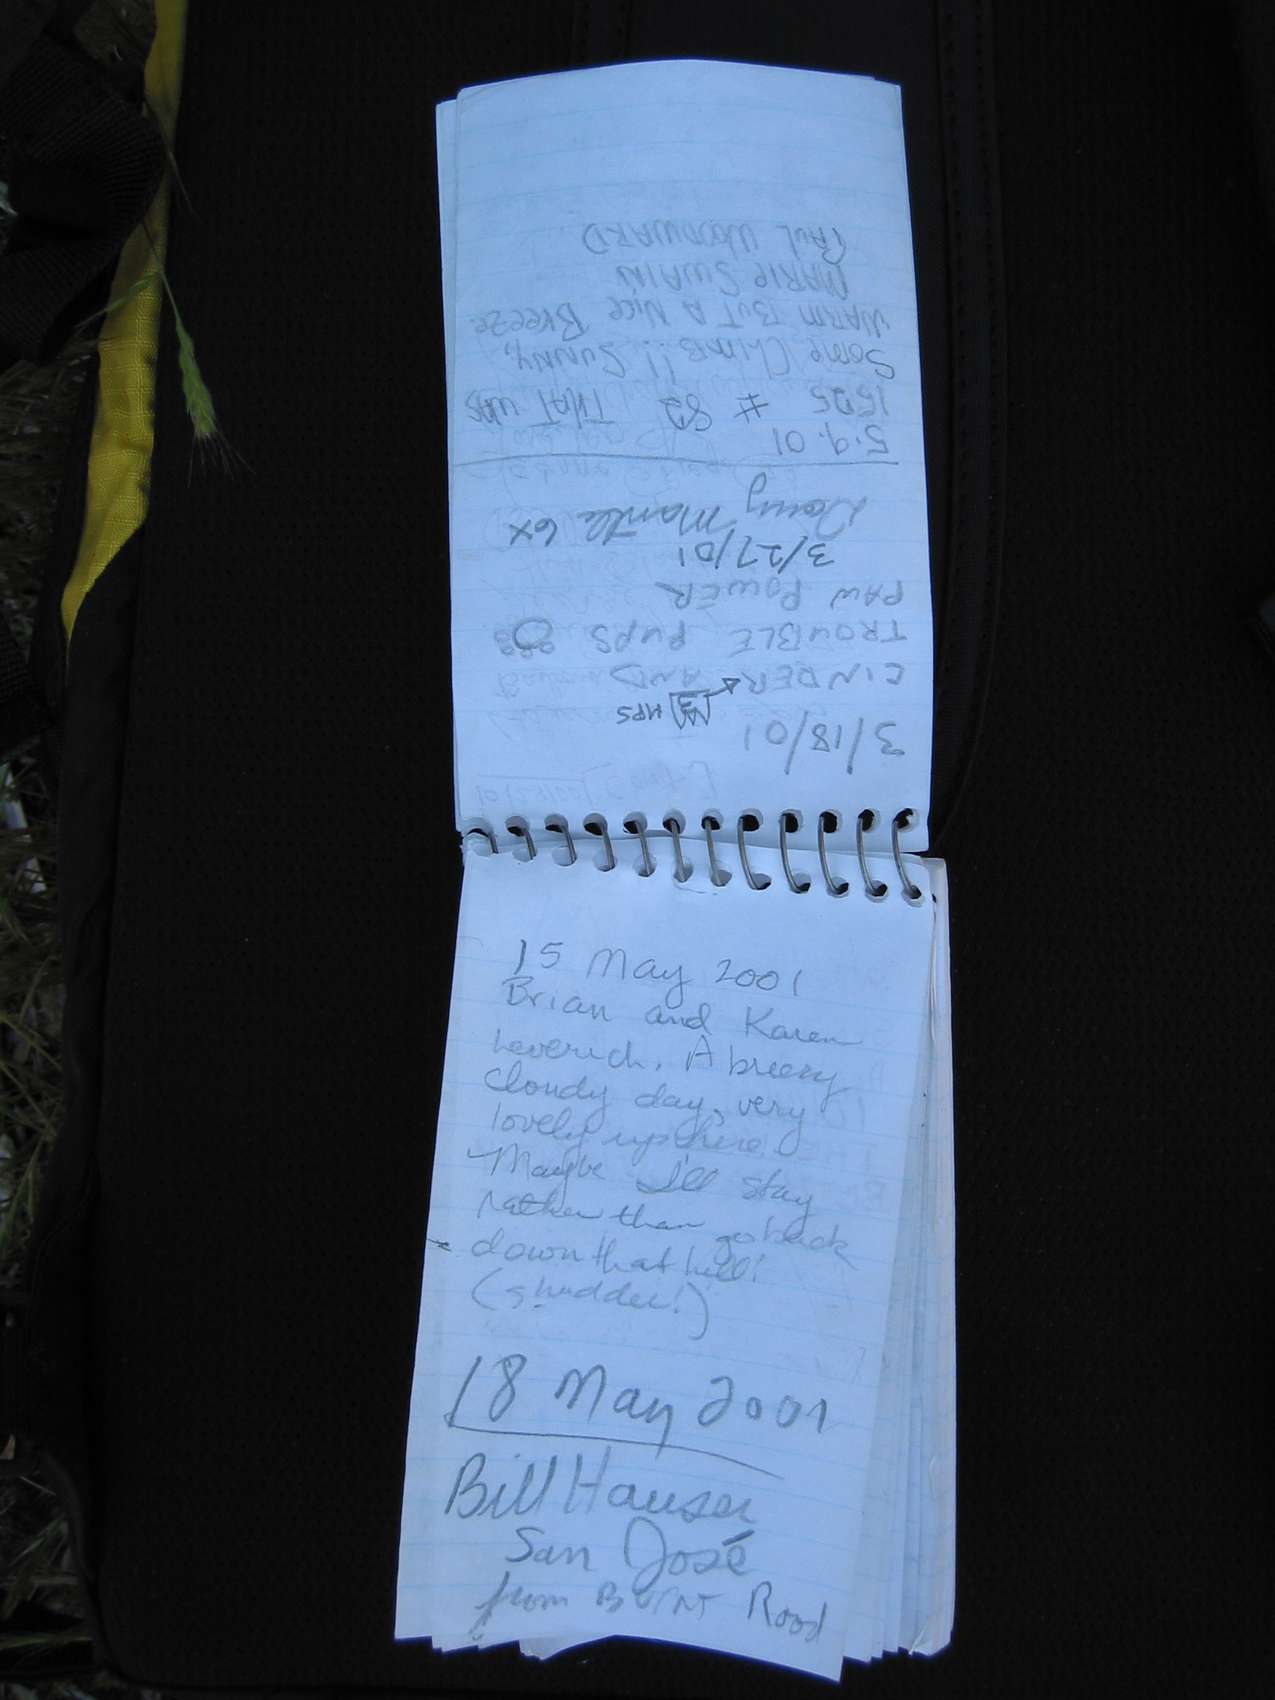 3/18/01
HPS
CINDER AND
TROUBLE PUPS
PAW POWER
3/27/01
Doug Mantle 6X
5.9.01
1525 # 82 THAT WAS
Some Climb!! Sunny,
WARM BUT A Nice Breeze
MARIE SWAIN
PAUL WOODWARD
15 May 2001
Brian and Karen
Leverich. A breezy
cloudy day, very
lovely up here.
Maybe I'll stay
rather than go back
down that hill!
(shudder!)
18 May 2001
Bill Hauser
San José
from Burnt Road